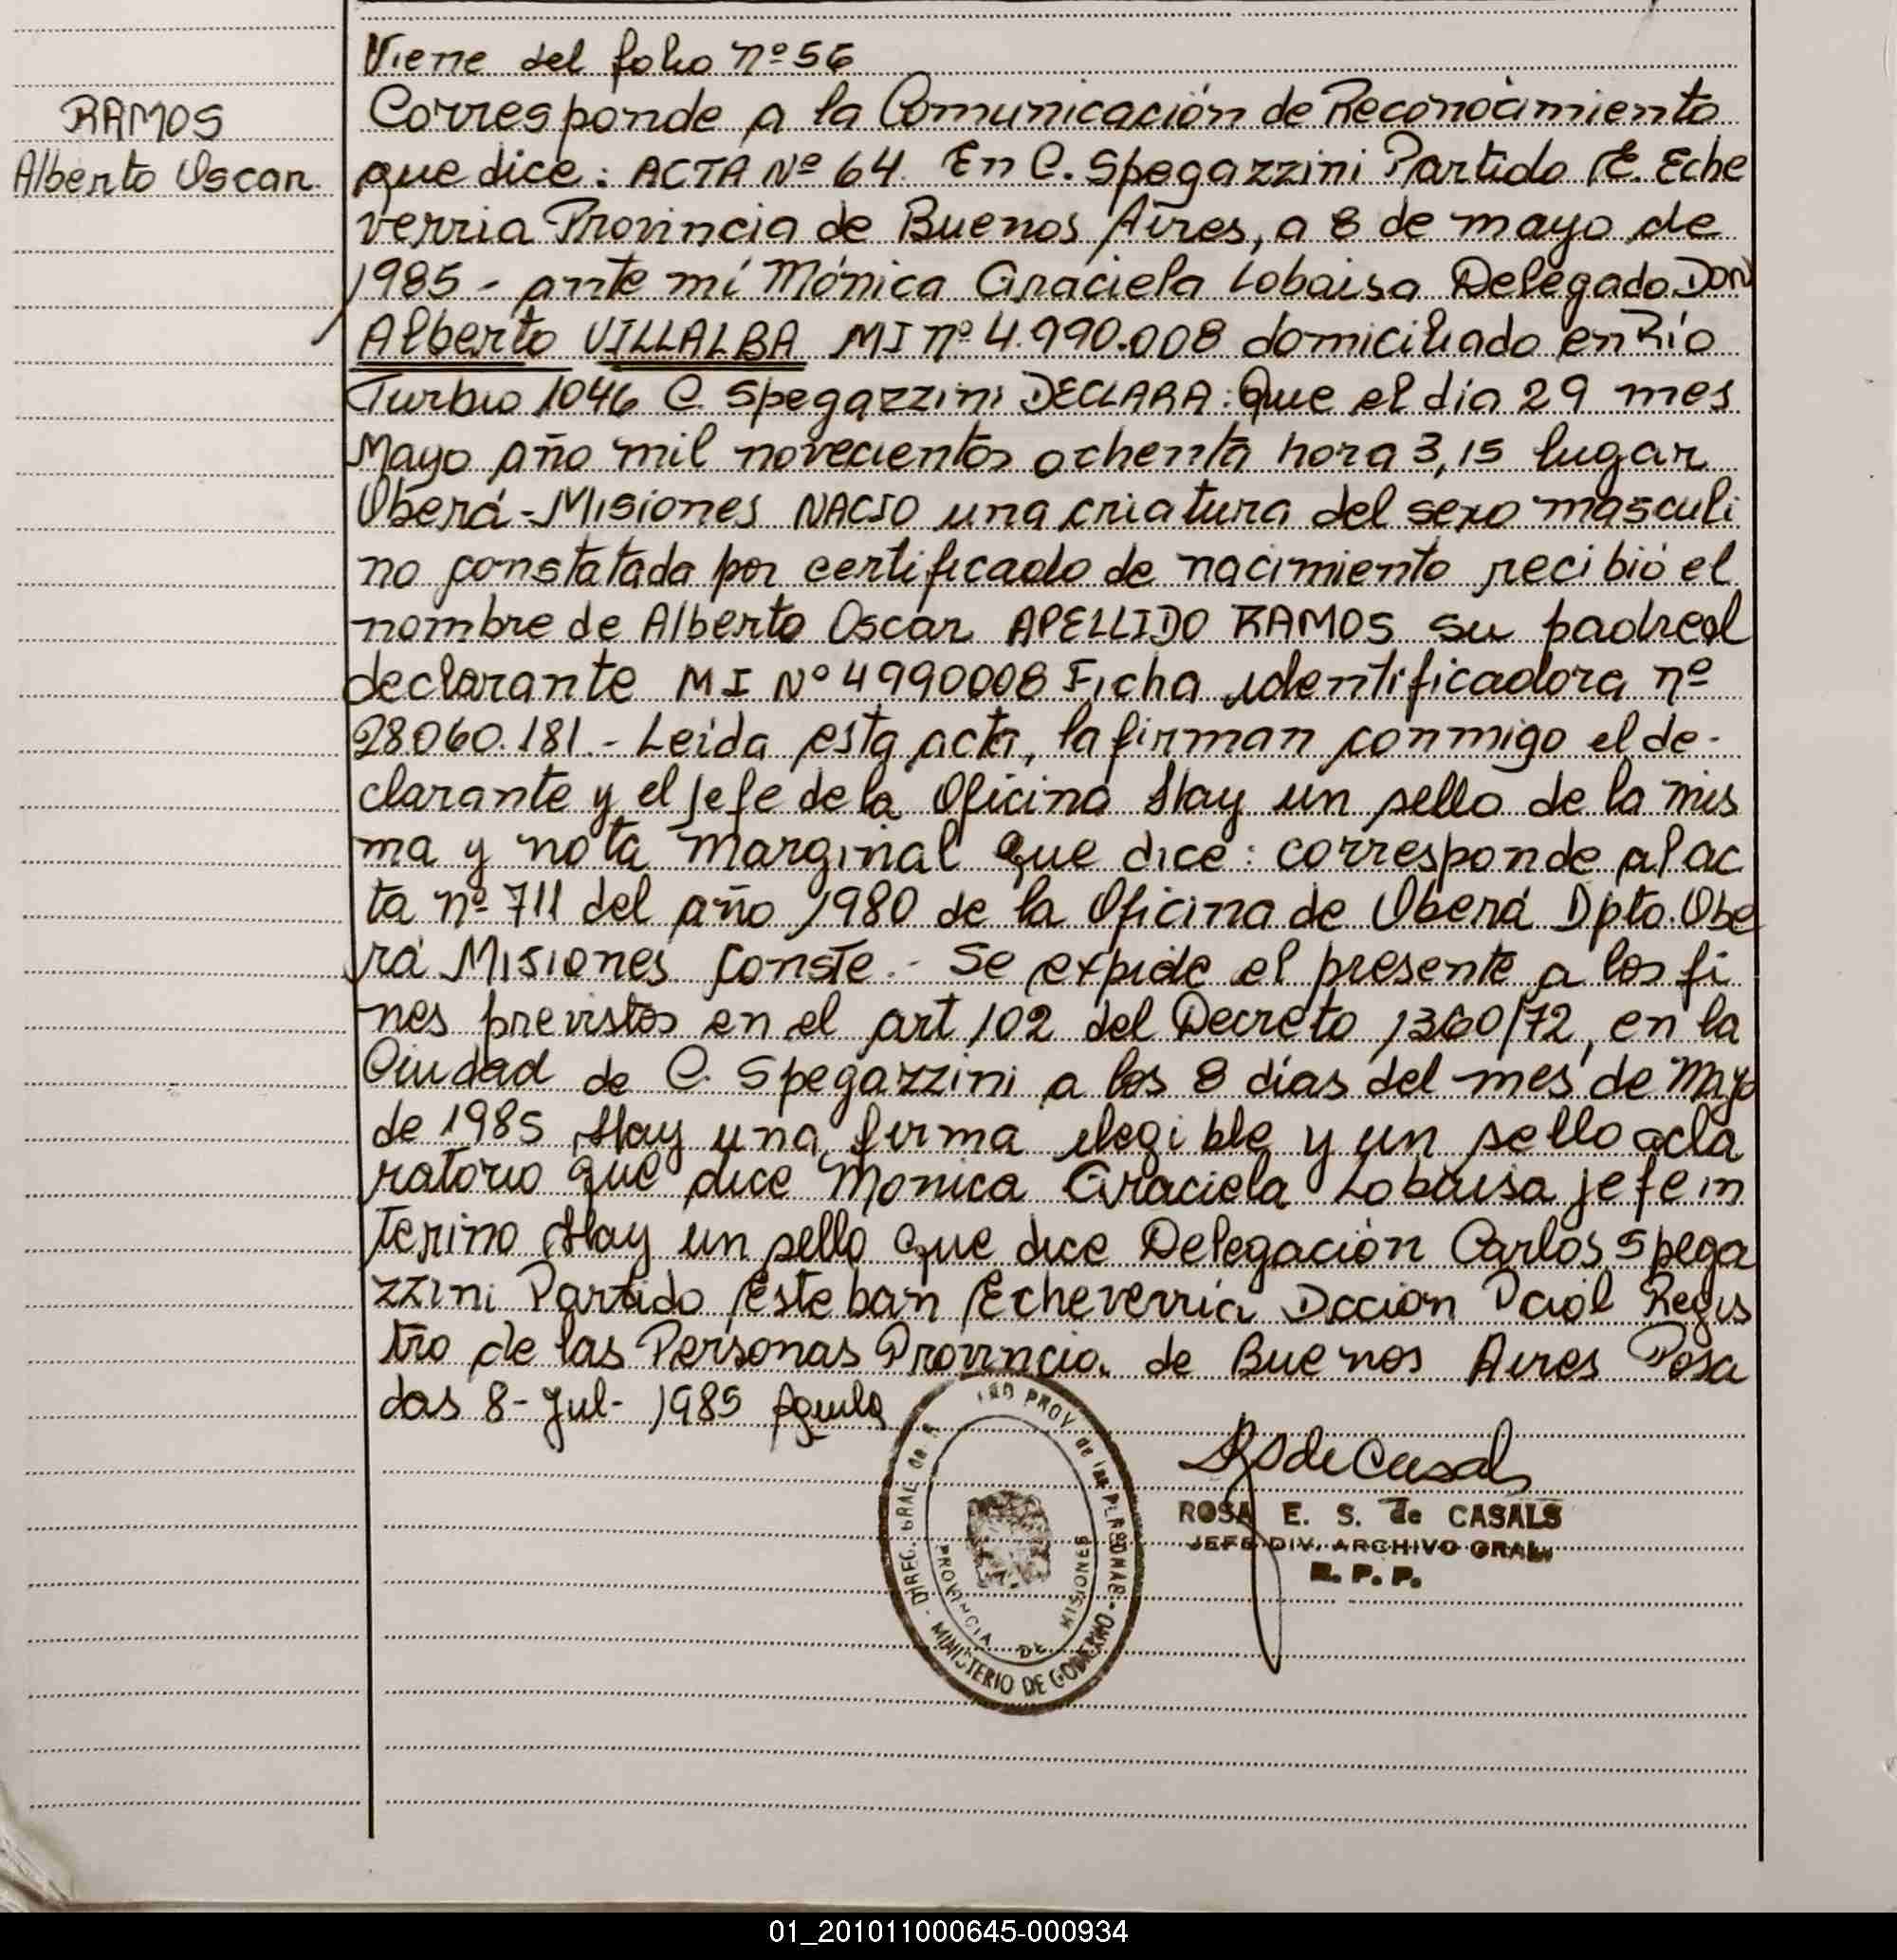 Viene del folio nº 56
RAMOS
Alberto Oscar
Corresponde a la Comunicación de Reconocimiento
que dice: ACTA Nº 64 En C. Spegazzini Partido E. Eche
verria Provincia de Buenos Aires, a 8 de mayo de
1985 - ante mí Mónica Graciela Lobaisa Delegado DON
Alberto VILLALBA MI nº 4.990.008 domiciliado en Río
Turbio 1046 C. Spegazzini DECLARA: Que el día 29 mes
Mayo año mil novecientos ochenta hora 3,15 lugar
Oberá - Misiones NACIO una criatura del sexo masculi
no constatada por certificado de nacimiento recibió el
nombre de Alberto Oscar APELLIDO RAMOS su padre el
declarante MI Nº 4990008 Ficha identificadora nº
28.060.181.- Leida esta acta, la firman conmigo el de-
clarante y el Jefe de la Oficina Hay un sello de la mis
ma y nota marginal que dice: corresponde al ac
ta nº 711 del año 1980 de la Oficina de Oberá Dpto. Obe
rá Misiones Conste.- Se expide el presente a los fi
nes previstos en el art 102 del Decreto 1360/72, en la
Ciudad de C. Spegazzini a los 8 días del mes de Mayo
de 1985 Hay una firma ilegible y un sello acla
ratorio que dice Monica Graciela Lobaisa jefe in
terino Hay un sello que dice Delegación Carlos Spega
zzini Partido Esteban Echeverria Dccion Pcial Regis
tro de las Personas Provincia de Buenos Aires Posa
das 8 - Jul - 1985
DIREC. GRAL de PROV de las PERSONAS - MINISTERIO DE GOBIERNO -
PROVINCIA DE MISIONES
ROSA E. S. de CASALS
JEFE DIV. ARCHIVO GRAL.
R. P. P.
01_201011000645-000934